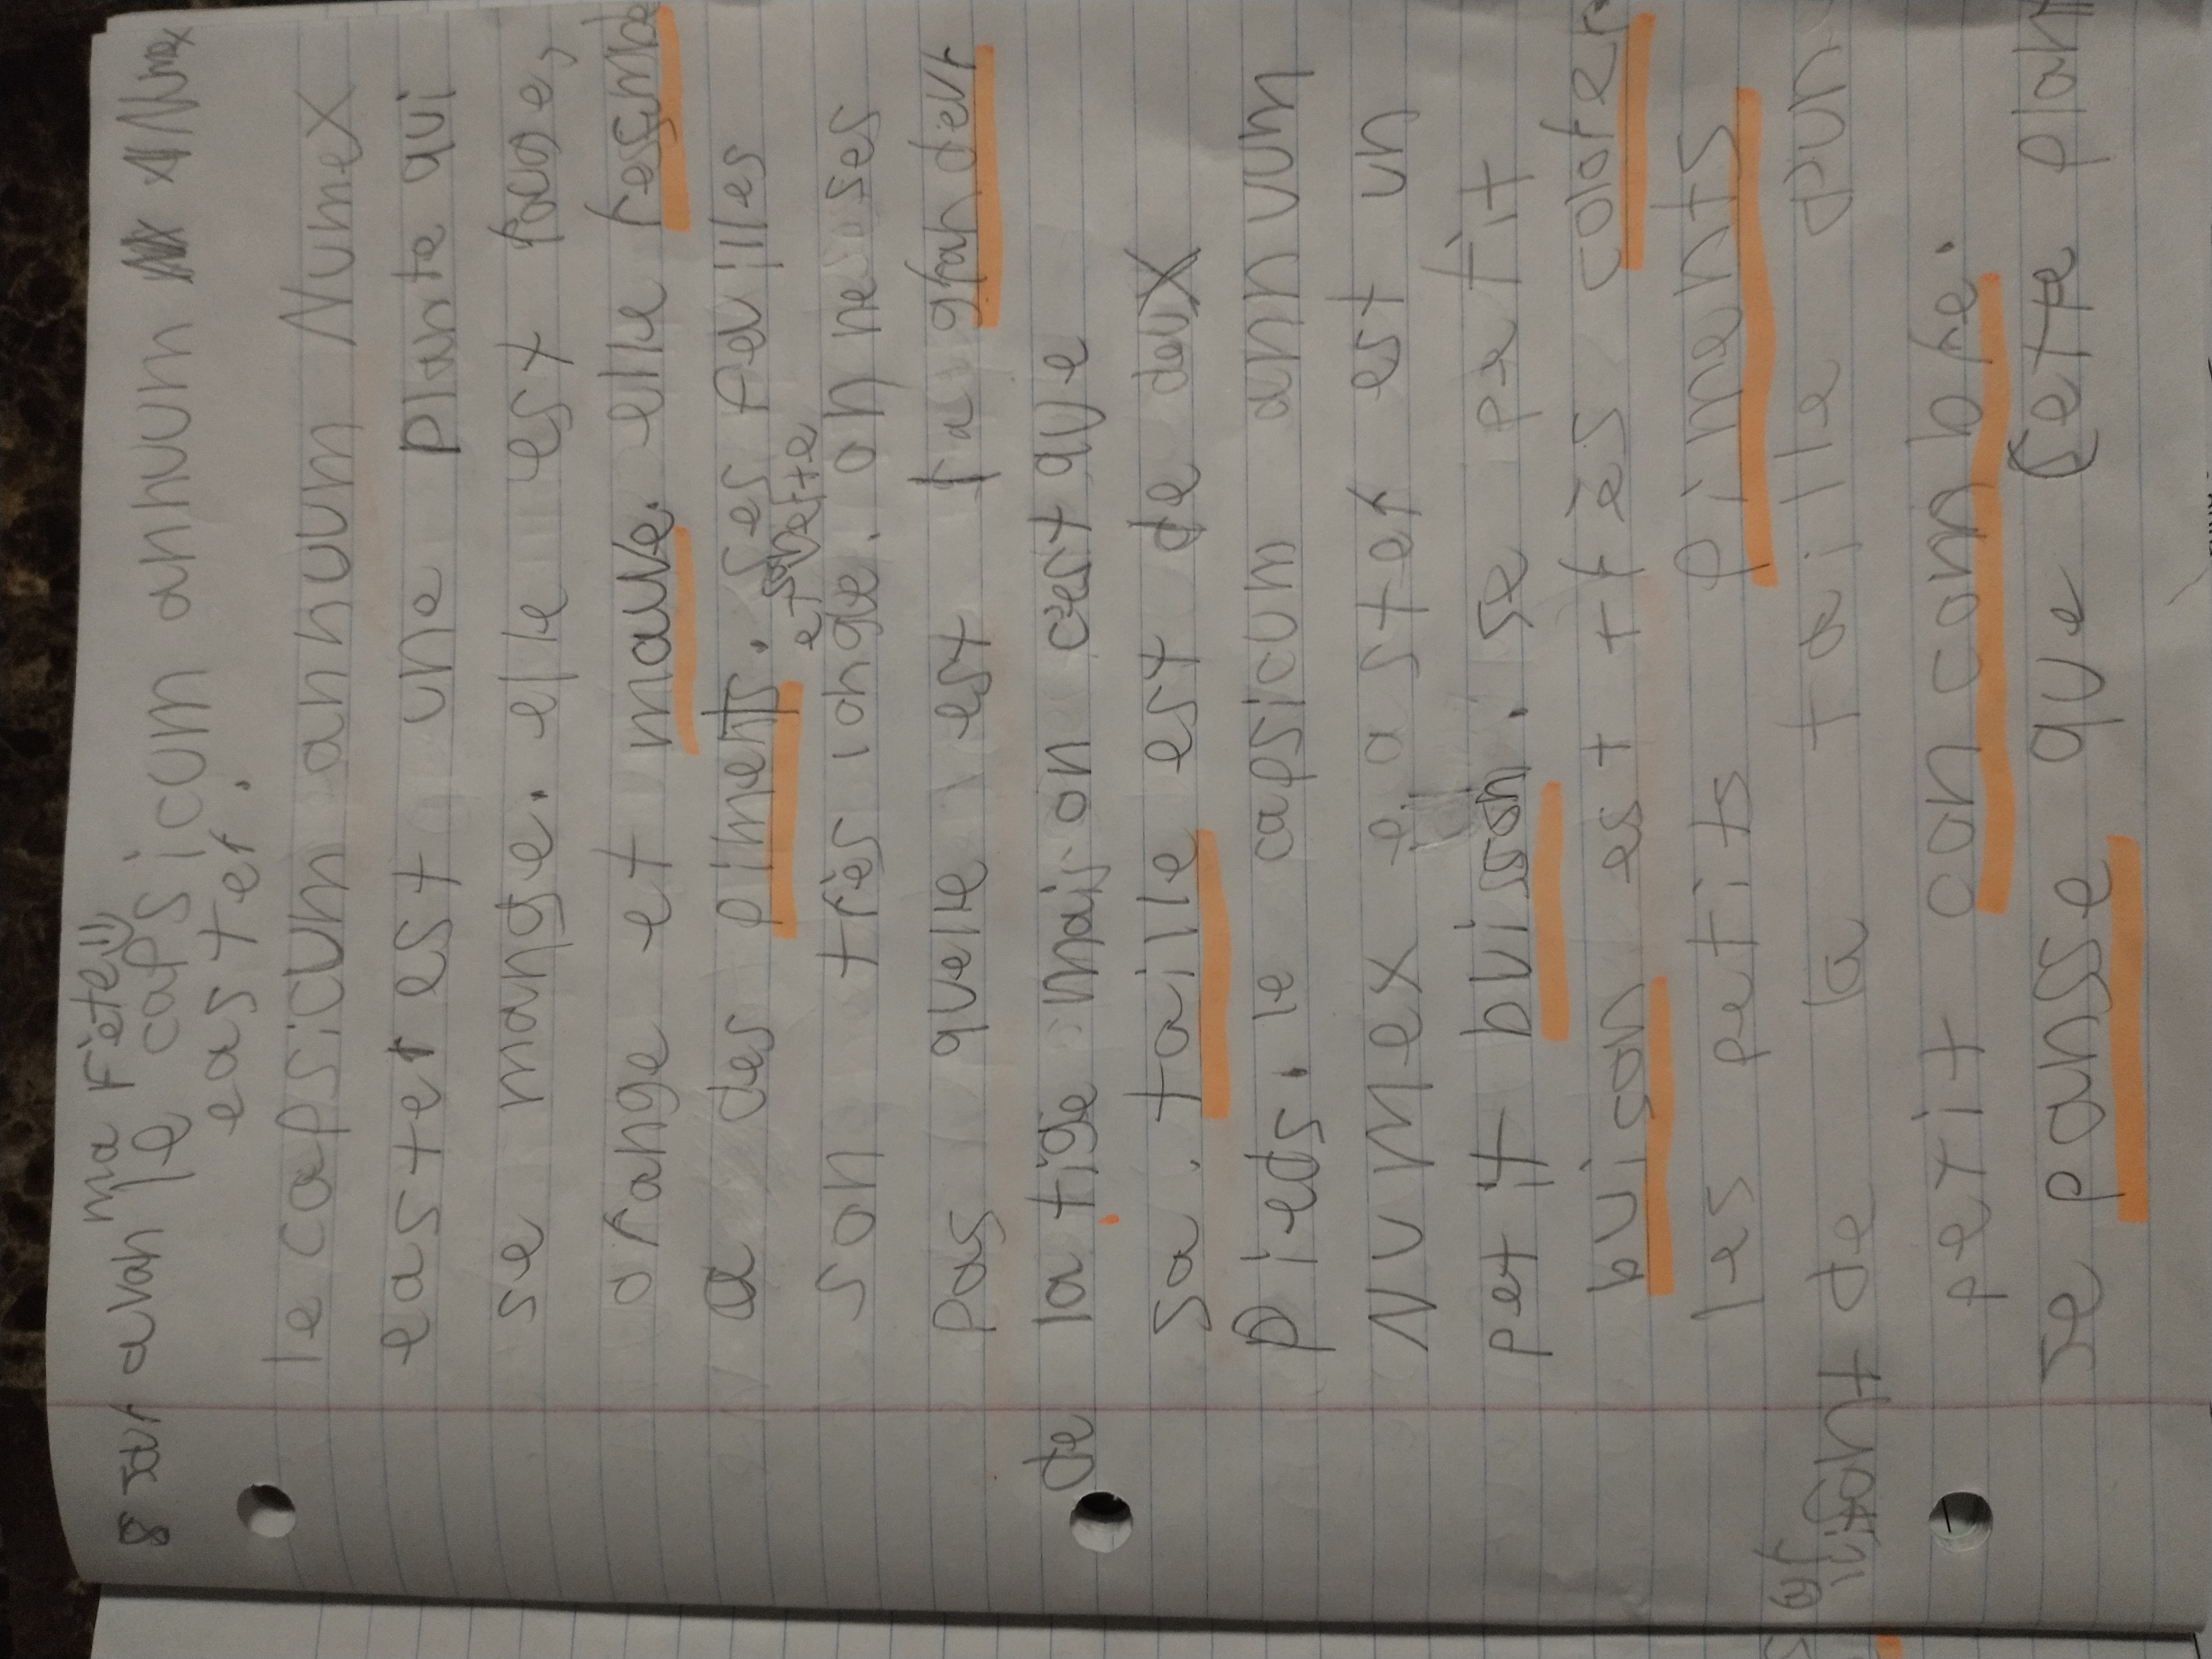 8 avan ma Fête!!
le capsicum annuum
easter.
le capsicum annuum Numex
easter est une plante qui
se mange. elle est rouge,
orange et mauve. elle resmbe
a des piments. ses feuilles
et sont verte
son très longe. on ne ses
pas quelle est sa grandeur
de la tige mais on c'est que
sa taille est de deux
pieds. le capsicum annuum
Numex easter est un
petit buisson. se petit
buison est très colorer
les petits piments
sont de la taille d'un
petit concombre.
je panse que cete plan